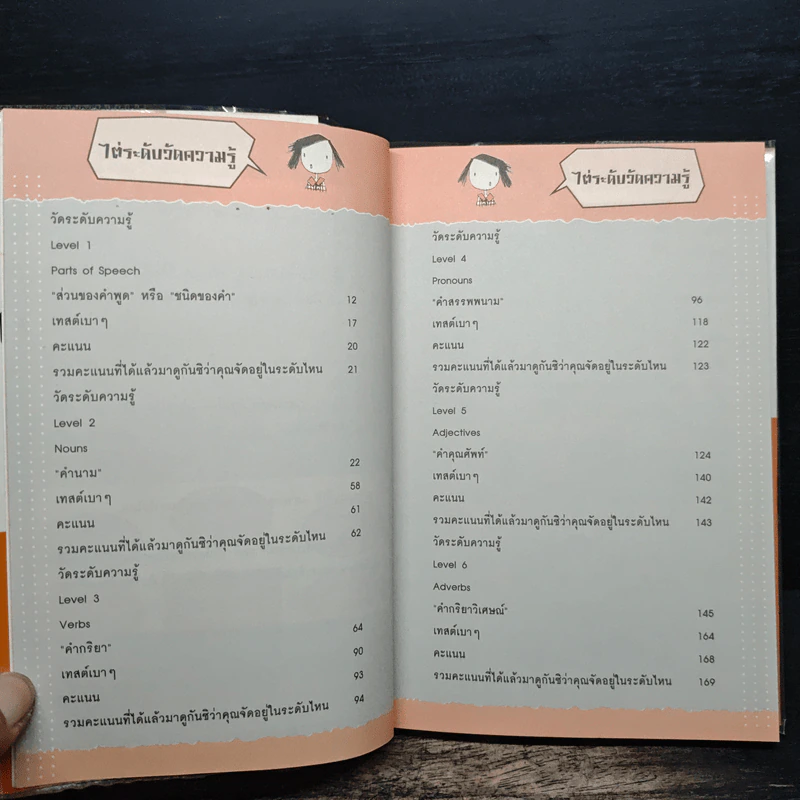 ไต่ระดับวัดความรู้
วัดระดับความรู้
Level 1
Parts of Speech
"ส่วนของคำพูด" หรือ "ชนิดของคำ" 12
เทสต์เบาๆ 17
คะแนน 20
รวมคะแนนที่ได้แล้วมาดูกันซิว่าคุณจัดอยู่ในระดับไหน 21
วัดระดับความรู้
Level 2
Nouns
"คำนาม" 22
เทสต์เบาๆ 58
คะแนน 61
รวมคะแนนที่ได้แล้วมาดูกันซิว่าคุณจัดอยู่ในระดับไหน 62
วัดระดับความรู้
Level 3
Verbs
"คำกริยา" 64
เทสต์เบาๆ 90
คะแนน 93
รวมคะแนนที่ได้แล้วมาดูกันซิว่าคุณจัดอยู่ในระดับไหน 94
ไต่ระดับวัดความรู้
วัดระดับความรู้
Level 4
Pronouns
"คำสรรพพนาม" 96
เทสต์เบาๆ 118
คะแนน 122
รวมคะแนนที่ได้แล้วมาดูกันซิว่าคุณจัดอยู่ในระดับไหน 123
วัดระดับความรู้
Level 5
Adjectives
"คำคุณศัพท์" 124
เทสต์เบาๆ 140
คะแนน 142
รวมคะแนนที่ได้แล้วมาดูกันซิว่าคุณจัดอยู่ในระดับไหน 143
วัดระดับความรู้
Level 6
Adverbs
"คำกริยาวิเศษณ์" 145
เทสต์เบาๆ 164
คะแนน 168
รวมคะแนนที่ได้แล้วมาดูกันซิว่าคุณจัดอยู่ในระดับไหน 169